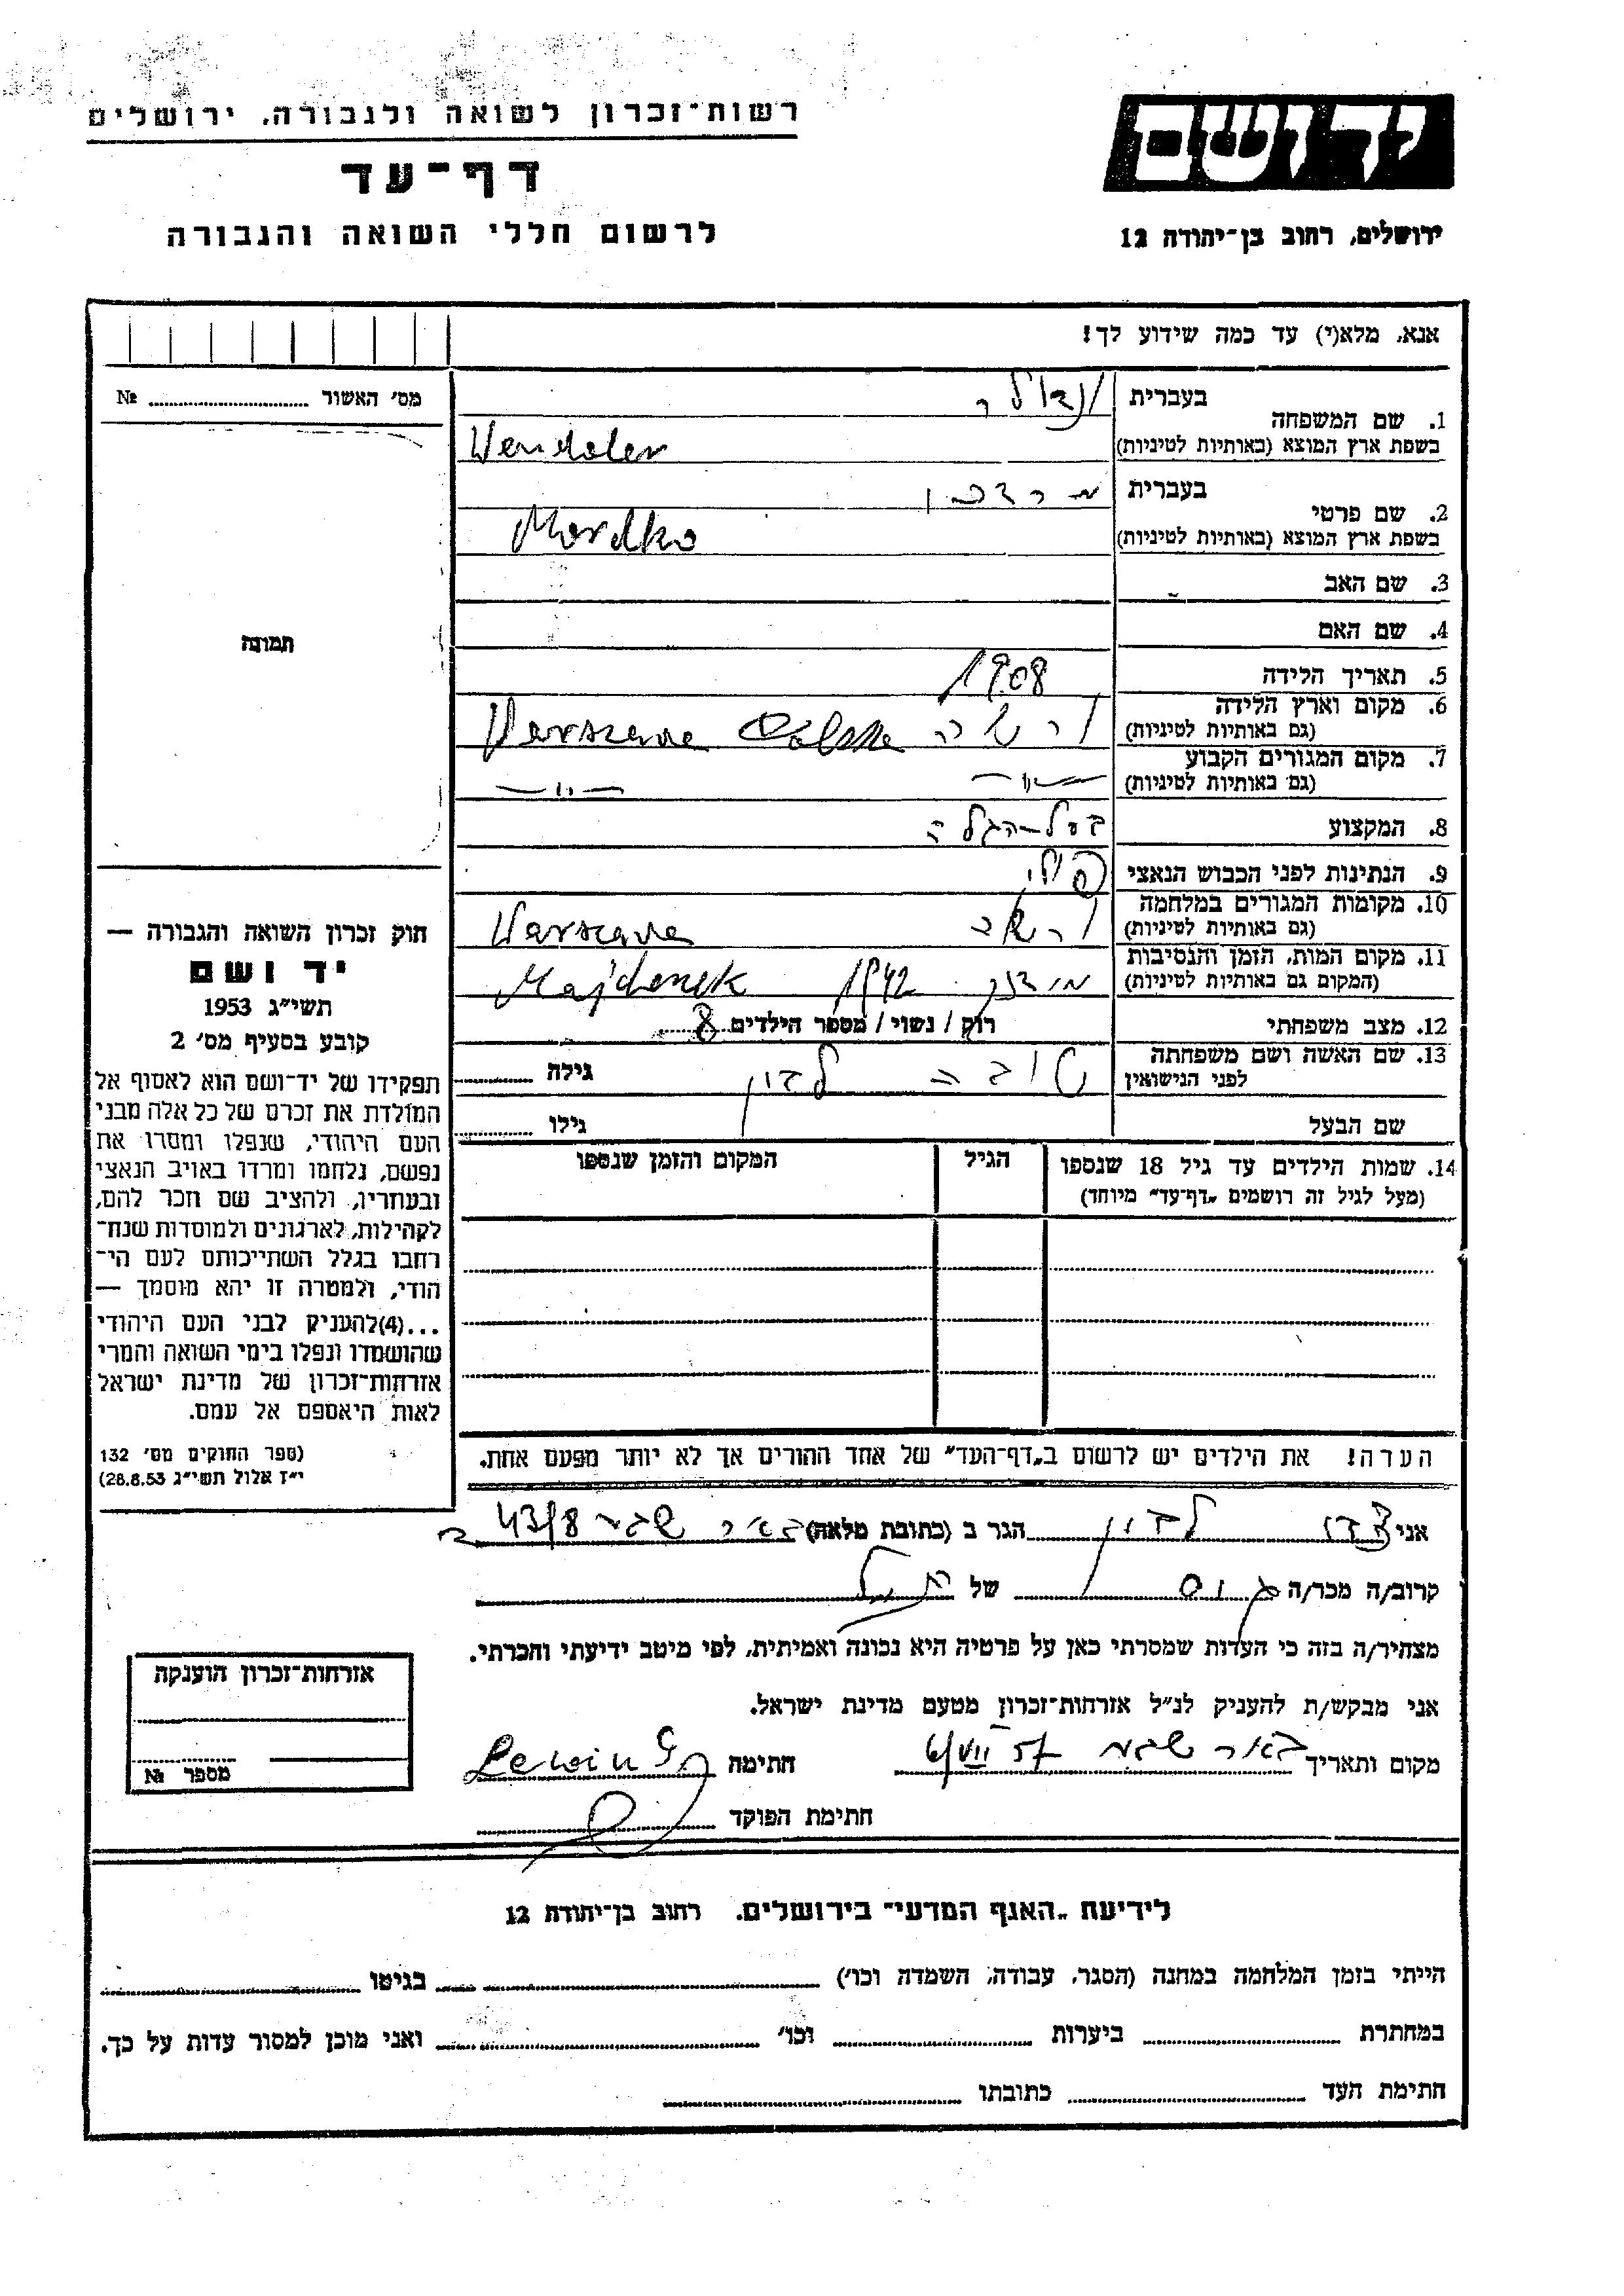 רשות־זכרון לשואה ולגבורה, ירושלים
דף־עד
לרשום חללי השואה והגבורה
יד ושם
ירושלים, רחוב בן־יהודה 12
אנא, מלא(י) עד כמה שידוע לך!
מס׳ האשור № 
תמונה
1. שם המשפחה
בעברית ונדולר
בשפת ארץ המוצא (באותיות לטיניות) Wendoler
2. שם פרטי
בעברית מרדכי
בשפת ארץ המוצא (באותיות לטיניות) Mordko
3. שם האב
4. שם האם
5. תאריך הלידה 1908
6. מקום וארץ הלידה
(גם באותיות לטיניות) ורשה Warszawa Polska
7. מקום המגורים הקבוע
(גם באותיות לטיניות) —״— —״—
8. המקצוע בעל-הגלה
9. הנתינות לפני הכבוש הנאצי פולני
10. מקומות המגורים במלחמה
(גם באותיות לטיניות) ורשה Warszawa
11. מקום המות, הזמן והנסיבות
(המקום גם באותיות לטיניות) מידנק 1942 Majdenek
12. מצב משפחתי רוק / נשוי / מספר הילדים
13. שם האשה ושם משפחתה
לפני הנישואין טובה לבון גילה
שם הבעל גילו
14. שמות הילדים עד גיל 18 שנספו
(מעל לגיל זה רושמים „דף־עד״ מיוחד)
הגיל
המקום והזמן שנספו
הערה! את הילדים יש לרשום ב„דף־העד״ של אחד ההורים אך לא יותר מפעם אחת.
חוק זכרון השואה והגבורה —
יד ושם
תשי״ג 1953
קובע בסעיף מס׳ 2
תפקידו של יד־ושם הוא לאסוף אל
המולדת את זכרם של כל אלה מבני
העם היהודי, שנפלו ומסרו את
נפשם, נלחמו ומרדו באויב הנאצי
ובעוזריו, ולהציב שם וזכר להם,
לקהילות, לארגונים ולמוסדות שנח־
רחבו בגלל השתייכותם לעם הי־
הודי, ולמטרה זו יהא מוסמך —
...(4) להעניק לבני העם היהודי
שהושמדו ונפלו בימי השואה והמרי
אזרחות־זכרון של מדינת ישראל
לאות היאספם אל עמם.
(ספר החוקים מס׳ 132
י״ז אלול תשי״ג 28.8.53)
אני לבון הגר ב (כתובת מלאה) באר שבע 43/8
קרוב/ה מכר/ה גיס של הנ״ל
מצהיר/ה בזה כי העדות שמסרתי כאן על פרטיה היא נכונה ואמיתית, לפי מיטב ידיעתי והכרתי.
אני מבקש/ת להעניק לנ״ל אזרחות־זכרון מטעם מדינת ישראל.
מקום ותאריך באר שבע 6/VII 57 חתימה Lewin
חתימת הפוקד
אזרחות־זכרון הוענקה
מספר №
לידיעת „האגף המדעי״ בירושלים, רחוב בן־יהודה 12
הייתי בזמן המלחמה במחנה (הסגר, עבודה, השמדה וכו׳) בגיטו
במחתרת ביערות וכו׳ ואני מוכן למסור עדות על כך.
חתימת העד כתובתו